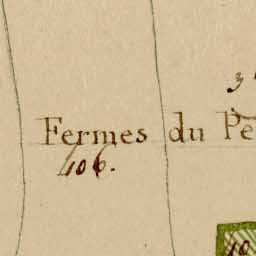 Fermes du Pe
106.
10